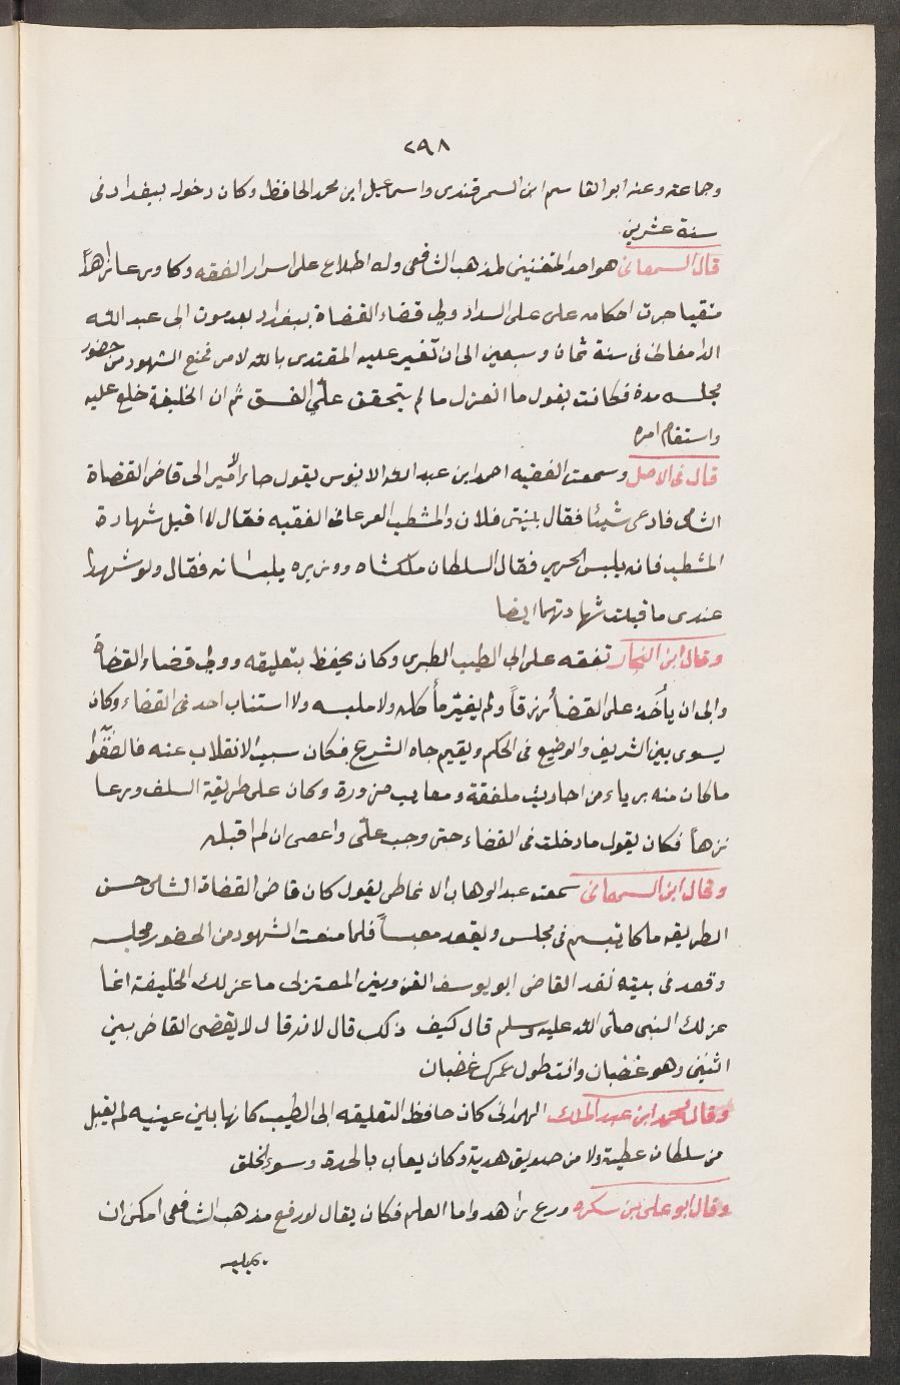 ٢٩٨
وجماعته وعنه ابو القاسم ابن السمرقندى واسماعيل ابن محمد الحافظ وكان دخوله ببغداد فى
سنة عشرين
قال السمعانى هو احد المتفننين لمذهب الشافعى وله اطلاع على اسرار الفقه وكا ورعا زاهداً
متقيا جرت احكامه على على السداد ولى قضاء القضاة ببغداد بعد موت ابى عبد الله
الدامغانى فى سنة ثمان وسبعين الى ان تغير عليه المقتدى بالله لامر فمنع الشهود من حضور
مجلسه مدة فكانت يقول ما انعزل ما لم يتحقق علىّ الفسق ثم ان الخليفة خلع عليه
واستقام امره
قال فى الاصل وسمعت الفقيه احمد ابن عبد الله الابنوس يقول جاء امير الى قاضى القضاة
الشامى فادعى شيئا فقال بينتى فلان والمشطب الفرغانى الفقيه فقال لا اقبل شهادة
المشطب فانه يلبس الحرير فقال السلطان ملكشاه ووزيره يلبسانه فقال ولو شهدا
عندى ما قبلت شهادتهما ايضا
وقال ابن النجار تفقه على ابى الطيب الطبرى وكان يحفظ بتعليقه وولى قضاء القضاة
وابى ان يأخذ على القضاء رزقاً ولم يغير مأكله ولا ملبسه ولا استناب احد فى القضاء وكان
يسوى بين الشريف والوضيع فى الحكم ويقيم جاه الشرع فكان سبب الانقلاب عنه فالصقوا
ما كان منه برياء من احاديث ملفقة ومعايب مزورة وكان على طريقة السلف ورعا
نزهاً فكان يقول ما دخلت فى القضاء حتى وجب علىّ واعصى ان لم اقبله
وقال ابن السمعانى سمعت عبد الوهاب الانماطى يقول كان قاضى القضاة الشامى حسن
الطريقه ما كا تبسم فى مجلس ويقعد معبساً فلما منعت الشهود من الحضور مجلسه
وقعد فى بيته نفد القاضى ابو يوسف القزوينى المعتزلى ما عزلك الخليفة انما
عزلك النبى صلى الله عليه وسلم قال كيف ذلك قال لانه قال لا يقضى القاضى بين
اثنين وهو غضبان وانت طول عمرك غضبان
وقال محمد ابن عبد الملك الهمدانى كان حافظ التعليقه ابى الطيب كانها بين عينيه لم يقبل
من سلطان عطية ولا من صديق هدية وكان يعاب بالحدة وسوء الخلق
وقال ابو على بن سكره ورع زاهد واما العلم فكان يقال لو رفع مذهب الشافعى امكن ان